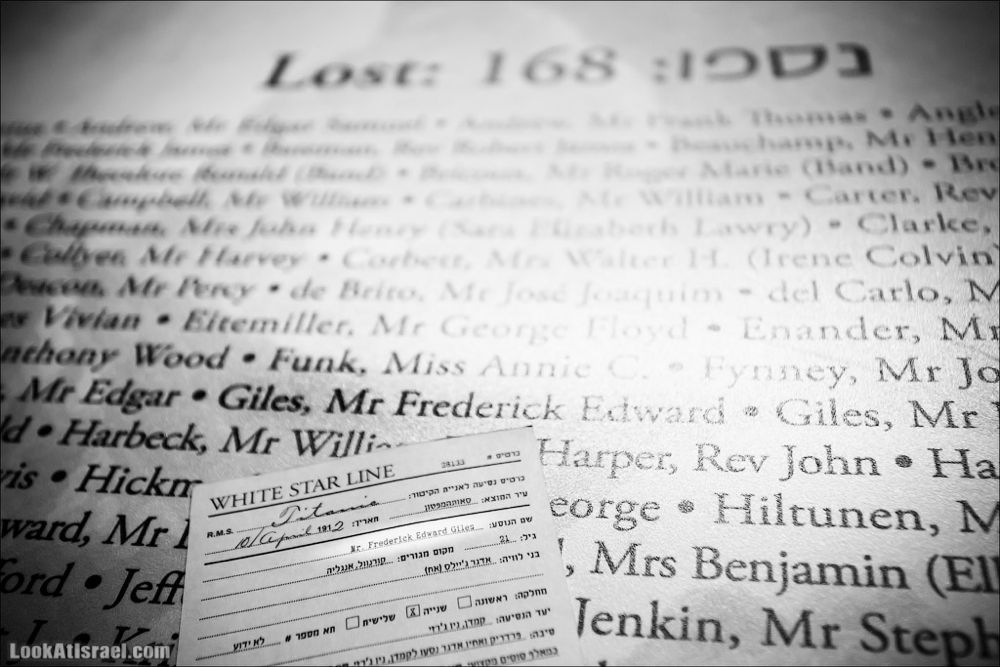 Lost: 168 נספו:
Andrew, Mr Edgar Samuel • Andrew, Mr Frank Thomas • Angle
Mr Frederick James • Bateman, Rev Robert James • Beauchamp, Mr Hen
Mr W. Theodore Ronald (Band) • Bricoux, Mr Roger Marie (Band) • Bro
• Campbell, Mr William • Carbines, Mr William • Carter, Rev
• Chapman, Mrs John Henry (Sara Elizabeth Lawry) • Clarke,
• Collyer, Mr Harvey • Corbett, Mrs Walter H. (Irene Colvin)
Deacon, Mr Percy • de Brito, Mr José Joaquim • del Carlo, M
es Vivian • Eitemiller, Mr George Floyd • Enander, Mr
nthony Wood • Funk, Miss Annie C. • Fynney, Mr Jo
, Mr Edgar • Giles, Mr Frederick Edward • Giles, Mr
ld • Harbeck, Mr Willia Harper, Rev John • Ha
vis • Hickm eorge • Hiltunen, M
ward, Mr , Mrs Benjamin (Ell
ford • Jeff Jenkin, Mr Steph
WHITE STAR LINE 28133 כרטיס #
כרטיס נסיעה לאניית הקיטור:
R.M.S. Titanic
עיר המוצא: סאות'המפטון
10/April 1912 תאריך:
שם הנוסע: Mr. Frederick Edward Giles
גיל: 21 מקום מגורים: קורנוול, אנגליה
בני לוויה: אדגר ג'יילס (אח)
מחלקה: ראשונה שנייה X שלישית תא מספר # לא ידוע
יעד הנסיעה: קמדן, ניו ג'רזי
סיבה: פרדריק ואחיו אדגר נסעו לקמדן, ניו ג'רזי
LookAtIsrael.com